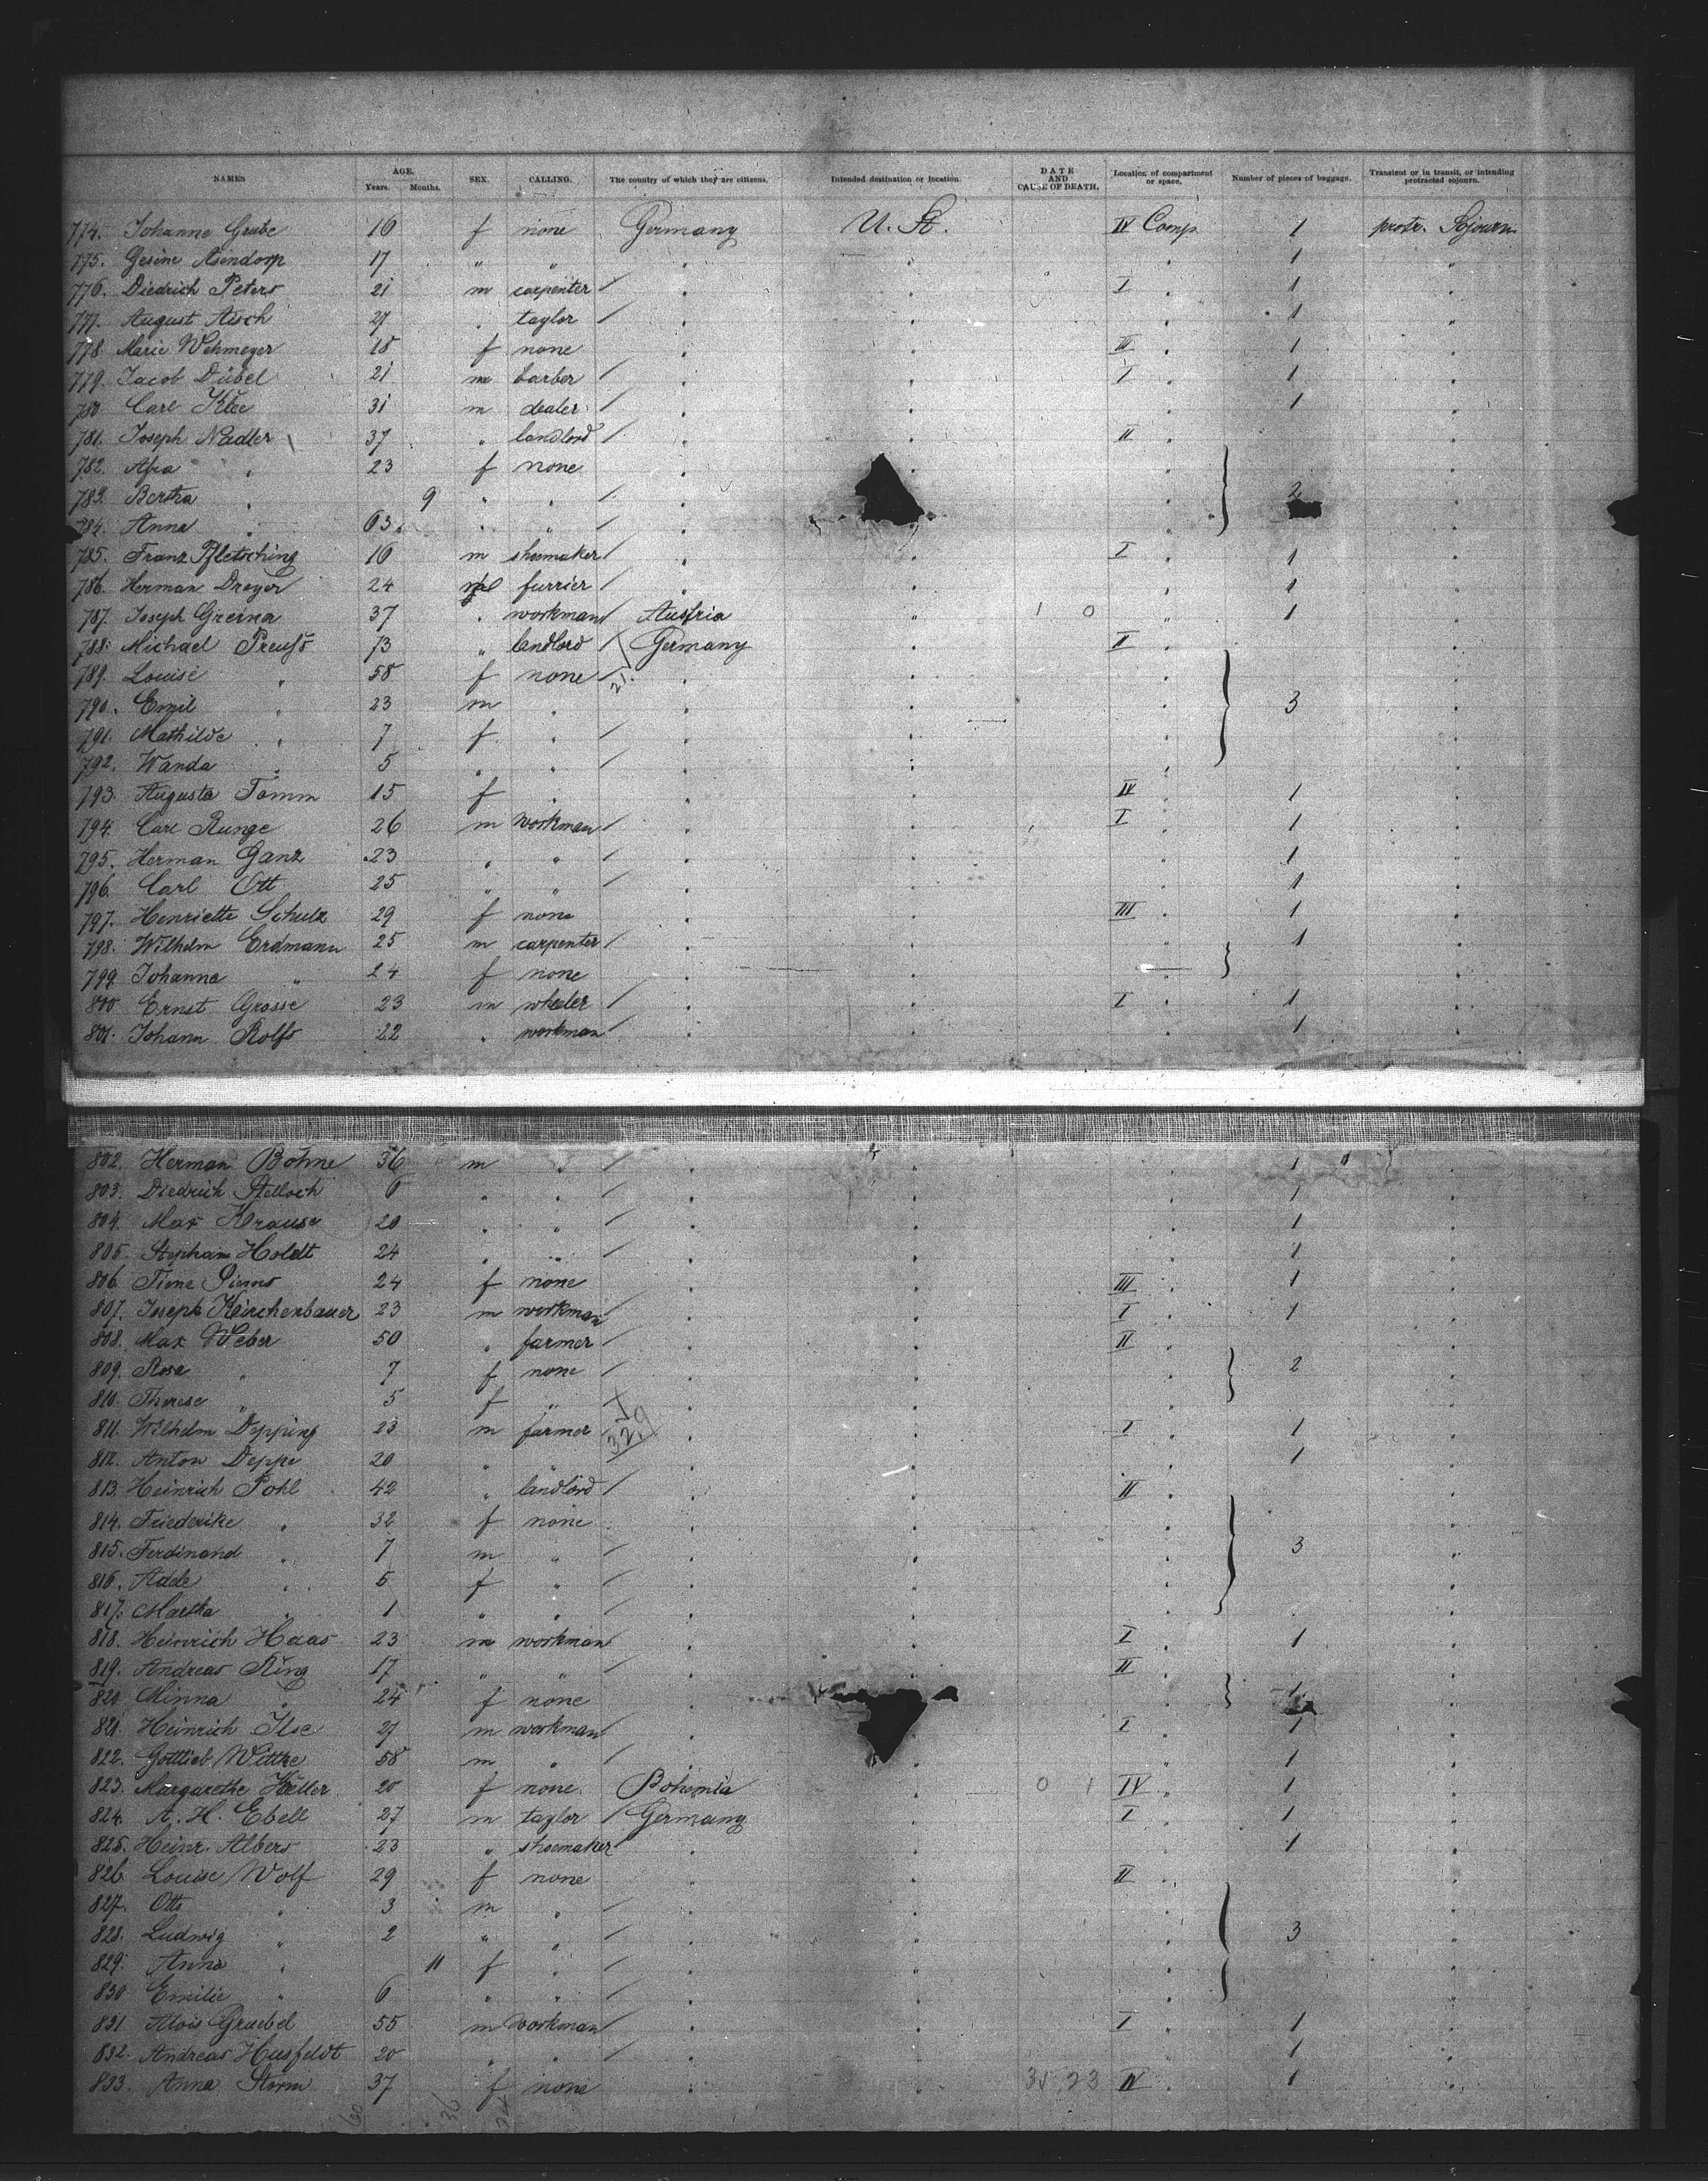 NAMES AGE. Years. Months. SEX. CALLING. The country of which they are citizens. Intended destination or location. DATE AND CAUSE OF DEATH. Location of compartment or space. Number of pieces of baggage. Transient or in transit, or intending protracted sojourn.
774. Johanne Grube 16 f none Germany U. St. IV Comp. 1 protr. Sojourn
775. Gesine Asendorp 17 " " " " " 1 "
776. Diedrich Peters 21 m carpenter / " " I " 1 "
777. August Aisch 27 " taylor / " " " 1 "
778 Marie Wehmeyer 18 f none " " III " 1 "
779. Jacob Dübel 21 m barber / " " I " 1 "
780 Carl Klee 31 m dealer / " " " 1 "
781. Joseph Nadler 37 " landlord / " " II "
782. Afra " 23 f none " " " "
783. Bertha " 9 " " / " " 2 "
784. Anna " 63 " " / " " " "
785. Franz Pfletsching 16 m shoemaker / " " I " 1 "
786. Herman Dreyer 24 furrier / " " " 1 "
787. Joseph Greina 37 " workman / Austria " 1 0 " 1 "
788. Michael Preuß 73 " landlord / Germany " II "
789. Louise " 58 f none / 21 " " " "
790. Emil " 23 m " " " " 3 "
791. Mathilde " 7 f " / " " " "
792. Wanda " 5 " " / " " " "
793. Augusta Tamm 15 f " " " IV " 1 "
794. Carl Runge 26 m workman / " " I " 1 "
795. Herman Ganz 23 " " / " " " 1 "
796. Carl Ott 25 " " / " " " 1 "
797. Henriette Schulz 29 f none " " III " 1 "
798. Wilhelm Erdmann 25 m carpenter / " " " 1 "
799 Johanna " 24 f none " " " "
800 Ernst Grosse 23 m wheeler / " " I " 1 "
801. Johann Rolfs 22 " workman / " " " 1 "
802. Herman Böhme 36 m " / " " " 1 "
803. Diedrich 6 " " / " " " 1 "
804. Max Krause 20 " " / " " " 1 "
805. Stephan Holdt 24 " " / " " " 1 "
806. Tiene 24 f none " " III " 1 "
807. Joseph Kirchenbauer 23 m workman / " " I " 1 "
808. Max Weber 50 " farmer / " " II " "
809. Rosa " 7 f none / " " " 2 "
810. Therese " 5 f " / " " " "
811. Wilhelm Depping 23 m farmer 329 " " I " 1 "
812. Anton Deppe 20 " " " " " 1 "
813. Heinrich Pohl 42 " landlord / " " II " "
814. Friederike " 32 f none " " " "
815. Ferdinand " 7 m " " " " 3 "
816. Adele " 5 f " / " " " "
817. Martha " 1 " " / " " " "
818. Heinrich Haas 23 m workman / " " I " 1 "
819. Andreas Ring 17 " " / " " II " "
820. Minna " 24 f none " " 1 "
821. Heinrich Ilse 27 m workman / " I " 1 "
822. Gottlieb Wittke 58 m " / " " " 1 "
823. Margarethe Keller 20 f none Bohemia " 0 1 IV " 1 "
824. A. H. Ebell 27 m taylor / Germany " I " 1 "
825. Heinr. Albers 23 " shoemaker / " " " 1 "
826. Louise Wolf 29 f none " " II " "
827. Otto " 3 m " / " " " "
828. Ludwig " 2 " " / " " " 3 "
829. Anna " 11 f " / " " " "
830 Emilie " 6 " " / " " " "
831 Alois Gruebel 55 m workman / " " I " 1 "
832. Andreas Husfeldt 20 " " / " " " 1 "
833. Anna Storm 37 f none " " 35 23 IV " 1 "
60 36 24